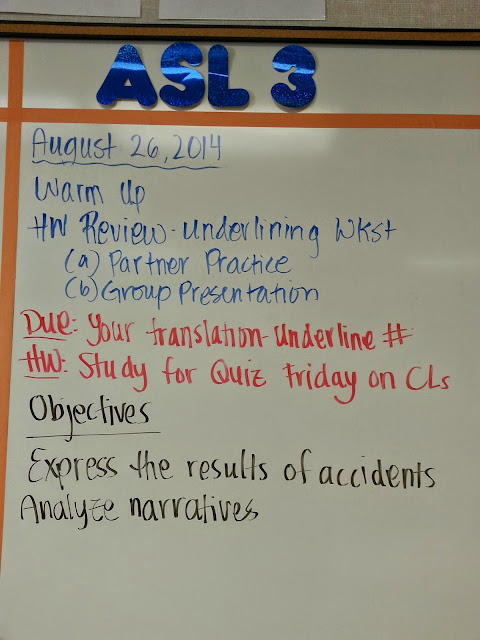 ASL 3
August 26, 2014
Warm Up
HW Review-Underlining Wkst
(a) Partner Practice
(b) Group Presentation
Due: Your translation-Underline #
HW: Study for Quiz Friday on CLs
Objectives
Express the results of accidents
Analyze narratives